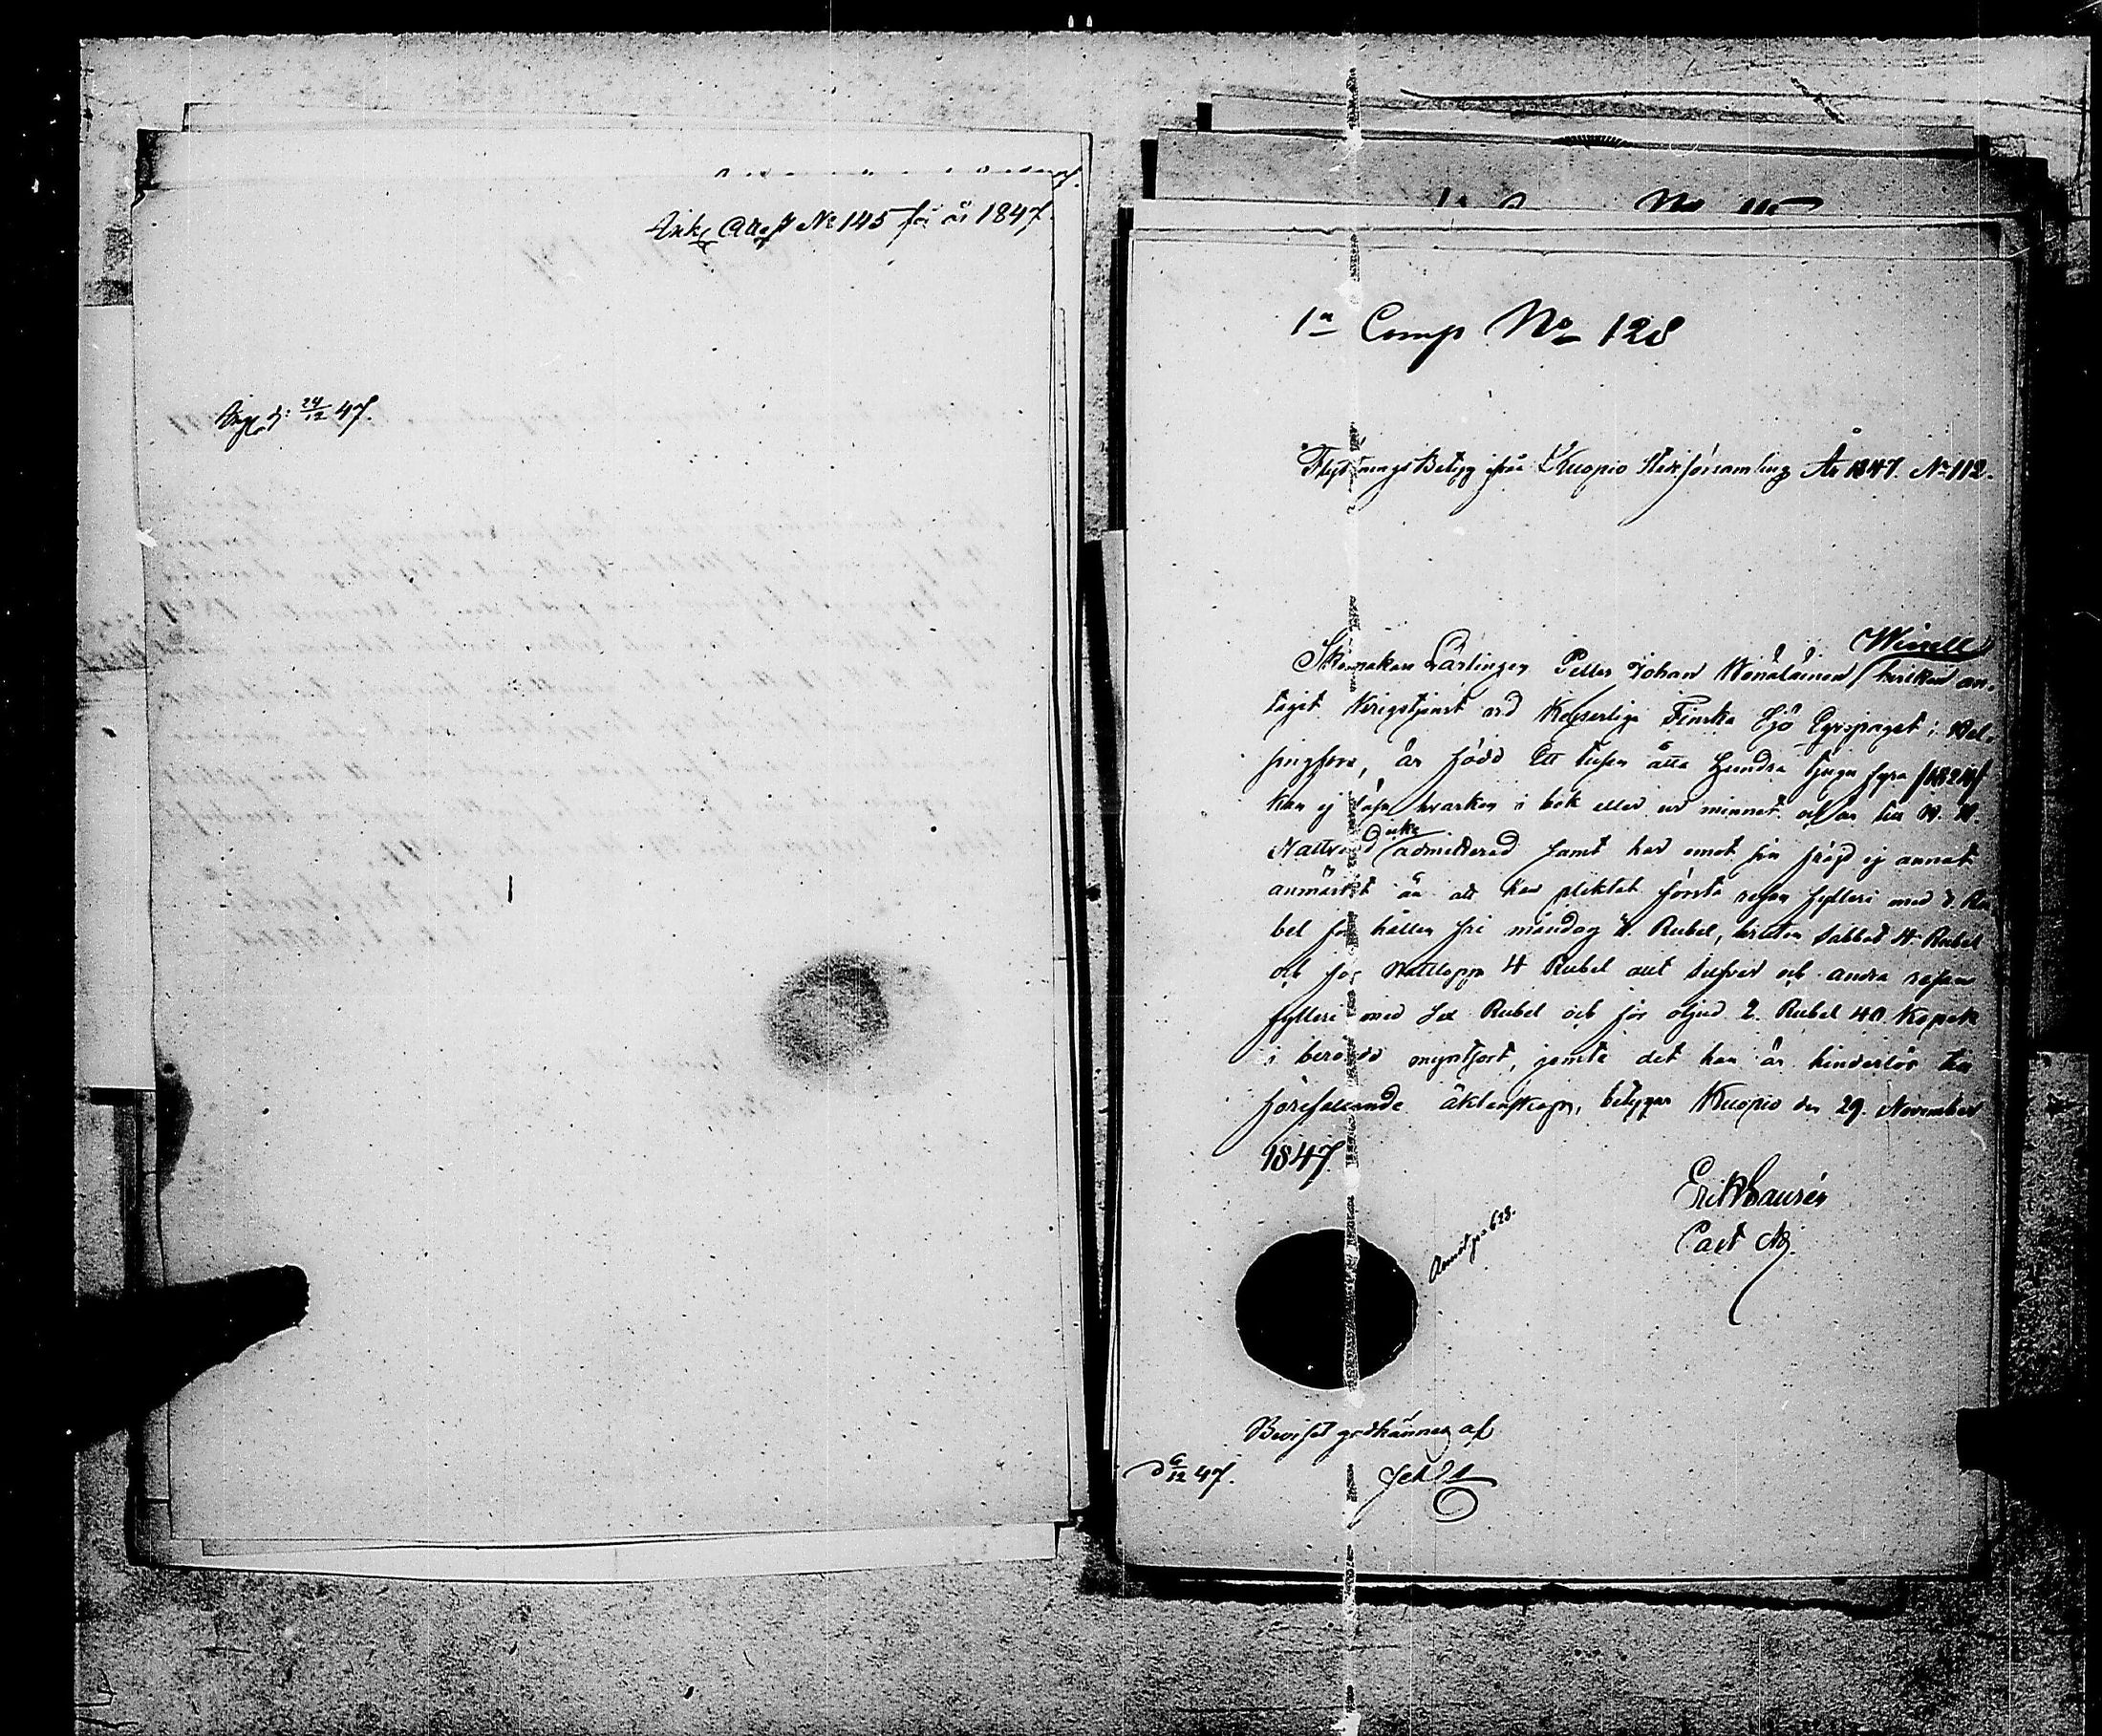 Ink. Attest No 145 för år 1847.
d: 24/12 47.
1a Comp No 128
Flyttnings Betyg ifrån Kuopio Stadsförsamling År 1847. No 112.
Winell
Skomakare Lärlingen Petter Johan Wänäläinen hvilken an-
tagit Krigstjenst vid Kejserliga Finska Sjö Eqvipaget i Hel-
singfors, är född Ett tusen åtta hundra tjugu fyra /1824/
kan ej läsa hvarken i bok eller ur minnet och är till H. H.
Nattvard icke admitterad samt har emot sin frejd ej annat
anmärkt än att han pliktat första resan fylleri med 3. Ru-
bel för hållen fri måndag 4. Rubel, bruten Sabbat 4 Rubel
och för Nattlopp 4 Rubel allt Silfver och andra resan
fylleri med Sex Rubel och för oljud 2. Rubel 40. Kopek
i berörde myntsort, jemte det han är hinderlös till
förefallande äktenskap, betygar Kuopio den 29. November
1847
Erik Laurén
Past. Adj.
Annot. pa 628.
Beviset godkännes af
d 6/12 47.